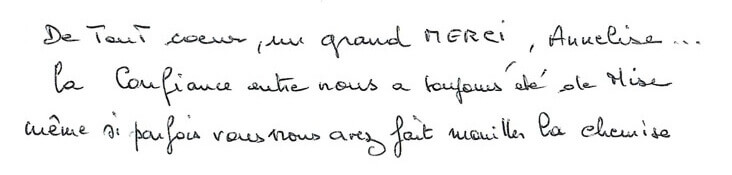 De Tout coeur, un grand MERCI, Annelise...
la Confiance entre nous a toujours été de Mise
même si parfois vous nous avez fait mouiller la chemise